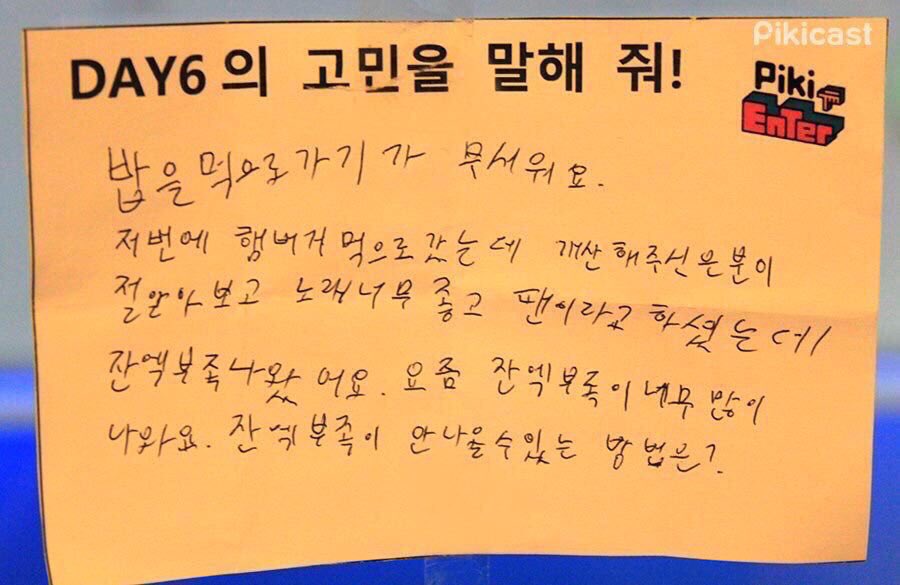 Pikicast
DAY6의 고민을 말해 줘!
Piki
EnTer
밥을먹으로가기가 무서워요.
저번에 햄버거먹으로갔는데 개산해주신은분이
절알아보고 노래너무좋고 팬이라고하셨는데
잔엑부족나왔어요. 요즘 잔엑부족이너무많이
나와요. 잔엑부족이 안나올수있는 방법은?